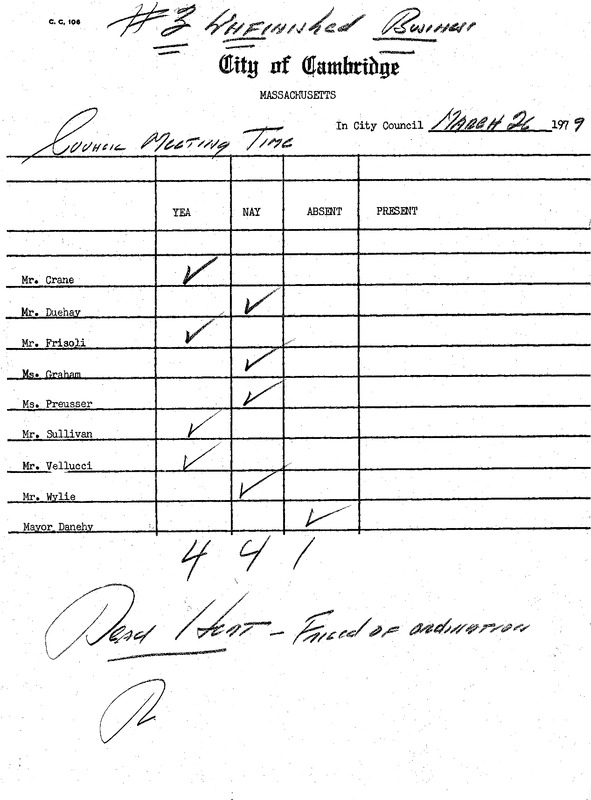 C. C. 106
#3 Unfinished Business
City of Cambridge
MASSACHUSETTS
In City Council March 26 1979
Council Meeting Time
YEA NAY ABSENT PRESENT
Mr. Crane ✓
Mr. Duehay ✓
Mr. Frisoli ✓
Ms. Graham ✓
Ms. Preusser ✓
Mr. Sullivan ✓
Mr. Vellucci ✓
Mr. Wylie ✓
Mayor Danehy ✓
4 4 1
Dead Heat - Failed of ordination